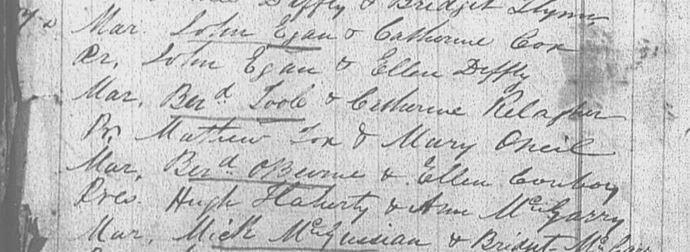 Deffly & Bridget Flynn
Mar. John Egan & Catherine Cox
Pr. John Egan & Ellen Deffly
Mar, Ber^d Toole & Catherine Relagher
Pr. Mathew Fox & Mary Oneil
Mar, Ber^d OBeirne & Ellen Conboy
Pres. Hugh Flaherty & Ann McGarry
Mar, Mick & Bridget